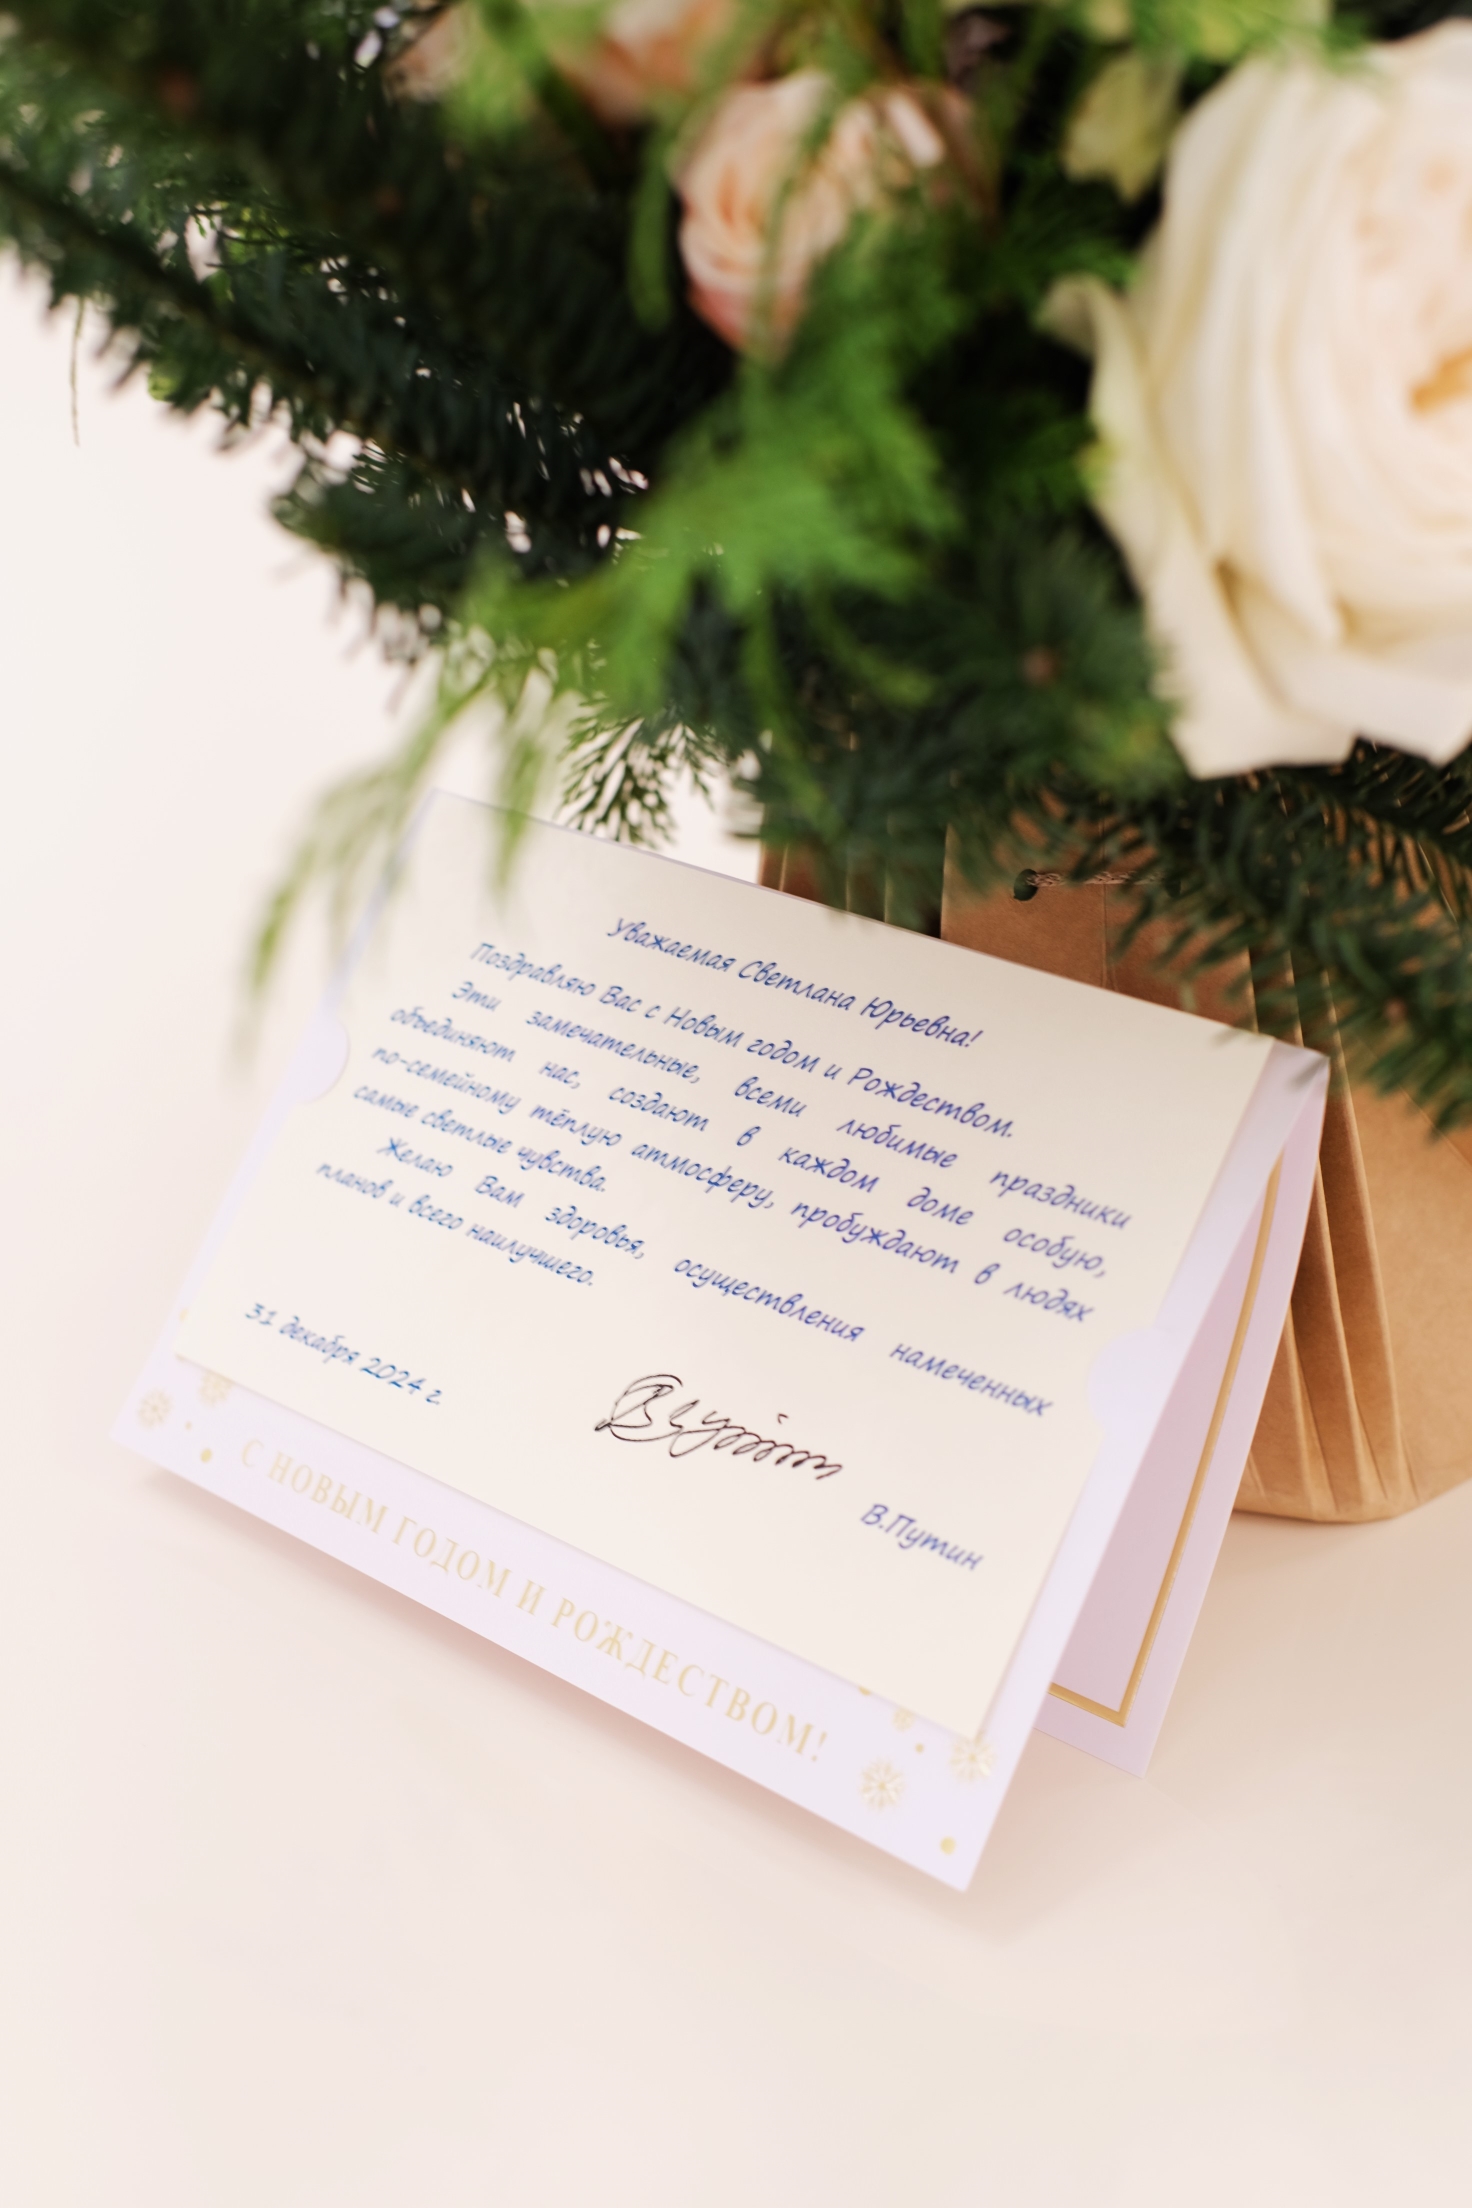 Уважаемая Светлана Юрьевна!
Поздравляю Вас с Новым годом и Рождеством.
Эти замечательные, всеми любимые праздники
объединяют нас, создают в каждом доме особую,
по-семейному тёплую атмосферу, пробуждают в людях
самые светлые чувства.
Желаю Вам здоровья, осуществления намеченных
планов и всего наилучшего.
31 декабря 2024 г.
В.Путин
С НОВЫМ ГОДОМ И РОЖДЕСТВОМ!